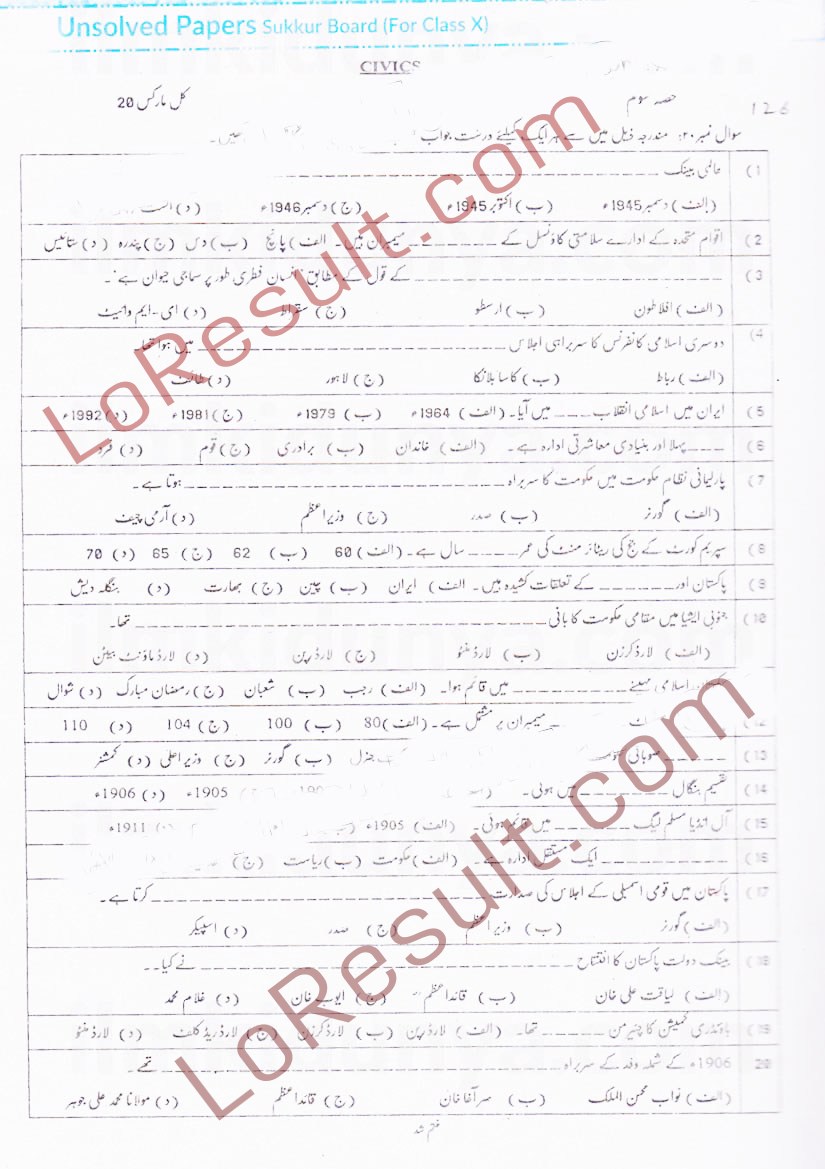 Unsolved Papers Sukkur Board (For Class X)
CIVICS
حصہ سوم کل مارکس 20
126
سوال نمبر ۲۰: مندرجہ ذیل میں سے ہر ایک کیلئے درست جواب
(1 عالمی بینک
(الف) دسمبر 1945ء (ب) اکتوبر 1945ء (ج) دسمبر 1946ء (د)
(2 اقوام متحدہ کے ادارے سلامتی کاؤنسل کے ________ میمبران ہیں۔ (الف) پانچ (ب) دس (ج) پندرہ (د) ستائیس
(3 ________ کے قول کے مطابق 'انسان فطری طور پر سماجی حیوان ہے'۔
(الف) افلاطون (ب) ارسطو (ج) سقراط (د) ای-ایم وائیٹ
(4 دوسری اسلامی کانفرنس کا سربراہی اجلاس ________ میں ہوا تھا۔
(الف) رباط (ب) کاسابلانکا (ج) لاہور (د) طائف
(5 ایران میں اسلامی انقلاب ____ میں آیا۔ (الف) 1964ء (ب) 1979ء (ج) 1981ء (د) 1992ء
(6 ____ پہلا اور بنیادی معاشرتی ادارہ ہے۔ (الف) خاندان (ب) برادری (ج) قوم (د) فرد
(7 پارلیمانی نظام حکومت میں حکومت کا سربراہ ________ ہوتا ہے۔
(الف) گورنر (ب) صدر (ج) وزیراعظم (د) آرمی چیف
(8 سپریم کورٹ کے جج کی ریٹائرمنٹ کی عمر ____ سال ہے۔ (الف) 60 (ب) 62 (ج) 65 (د) 70
(9 پاکستان اور ______ کے تعلقات کشیدہ ہیں۔ (الف) ایران (ب) چین (ج) بھارت (د) بنگلہ دیش
(10 جنوبی ایشیا میں مقامی حکومت کا بانی ________ تھا۔
(الف) لارڈ کرزن (ب) لارڈ منٹو (ج) لارڈ رپن (د) لارڈ ماؤنٹ بیٹن
اسلامی مہینے ________ میں قائم ہوا۔ (الف) رجب (ب) شعبان (ج) رمضان مبارک (د) شوال
(12 میمبران پر مشتمل ہے۔ (الف) 80 (ب) 100 (ج) 104 (د) 110
(13 ______ صوبائی جنرل (ب) گورنر (ج) وزیراعلیٰ (د) کمشنر
(14 تقسیم بنگال ________ میں ہوئی۔ 1905ء (د) 1906ء
(15 آل انڈیا مسلم لیگ ________ میں قائم ہوئی۔ (الف) 1905ء (د) 1911ء
(16 ________ ایک مستقل ادارہ ہے۔ (الف) حکومت (ب) ریاست (ج)
(17 پاکستان میں قومی اسمبلی کے اجلاس کی صدارت ________ کرتا ہے۔
(الف) گورنر (ب) وزیراعظم (ج) صدر (د) اسپیکر
(18 بینک دولت پاکستان کا افتتاح ________ نے کیا۔
(الف) لیاقت علی خان (ب) قائداعظم (ج) ایوب خان (د) غلام محمد
(19 باؤنڈری کمیشن کا چئیرمن ______ تھا۔ (الف) لارڈ رپن (ب) لارڈ کرزن (ج) لارڈ ریڈ کلف (د) لارڈ منٹو
20 1906ء کے شملہ وفد کے سربراہ ________ تھے۔
(الف) نواب محسن الملک (ب) سر آغا خان (ج) قائداعظم (د) مولانا محمد علی جوہر
ختم شد
LoResult.com
LoResult.com